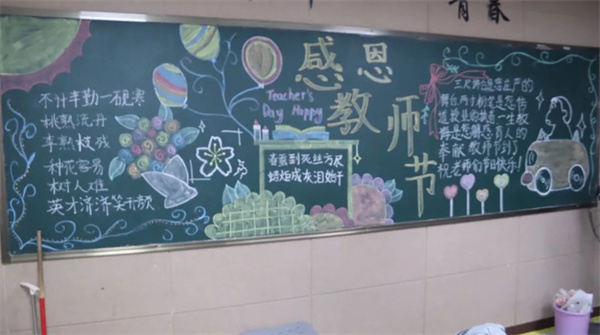 青春
感恩
教师节
Teacher's
Day Happy
不计辛勤一砚寒
桃熟流丹
李熟枝残
种花容易
树人难
英才济济笑开颜
春蚕到死丝方尽
蜡炬成灰泪始干
三尺讲台是您生的
舞台,两寸粉笔是您传
道授业的执着一生教
诲是您育人的
奉献,教师节到了
祝老师们节日快乐!